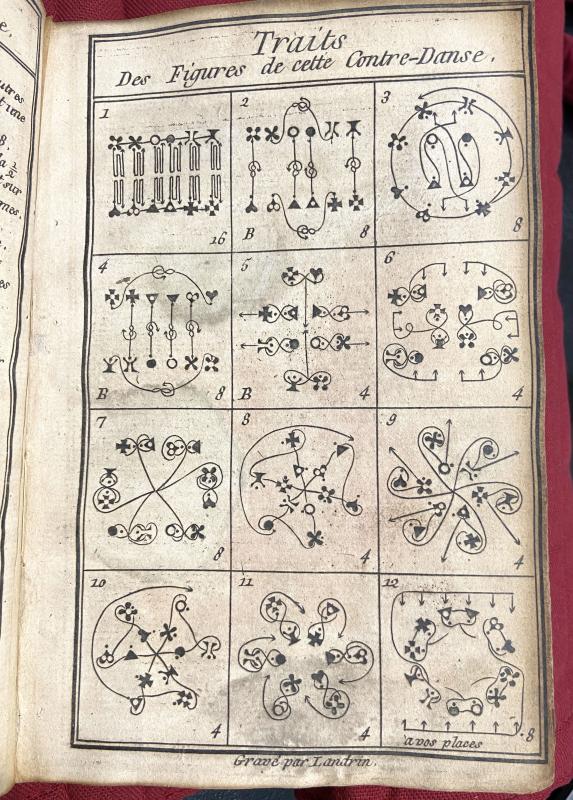 Traits
Des Figures de cette Contre-Danse.
1
16
2
B
8
3
8
4
B
8
5
B
4
6
4
7
8
8
4
9
4
10
4
11
4
12
a vos places
8
Gravé par Landrin.
utres
8.
la ½
sur
mes.
es